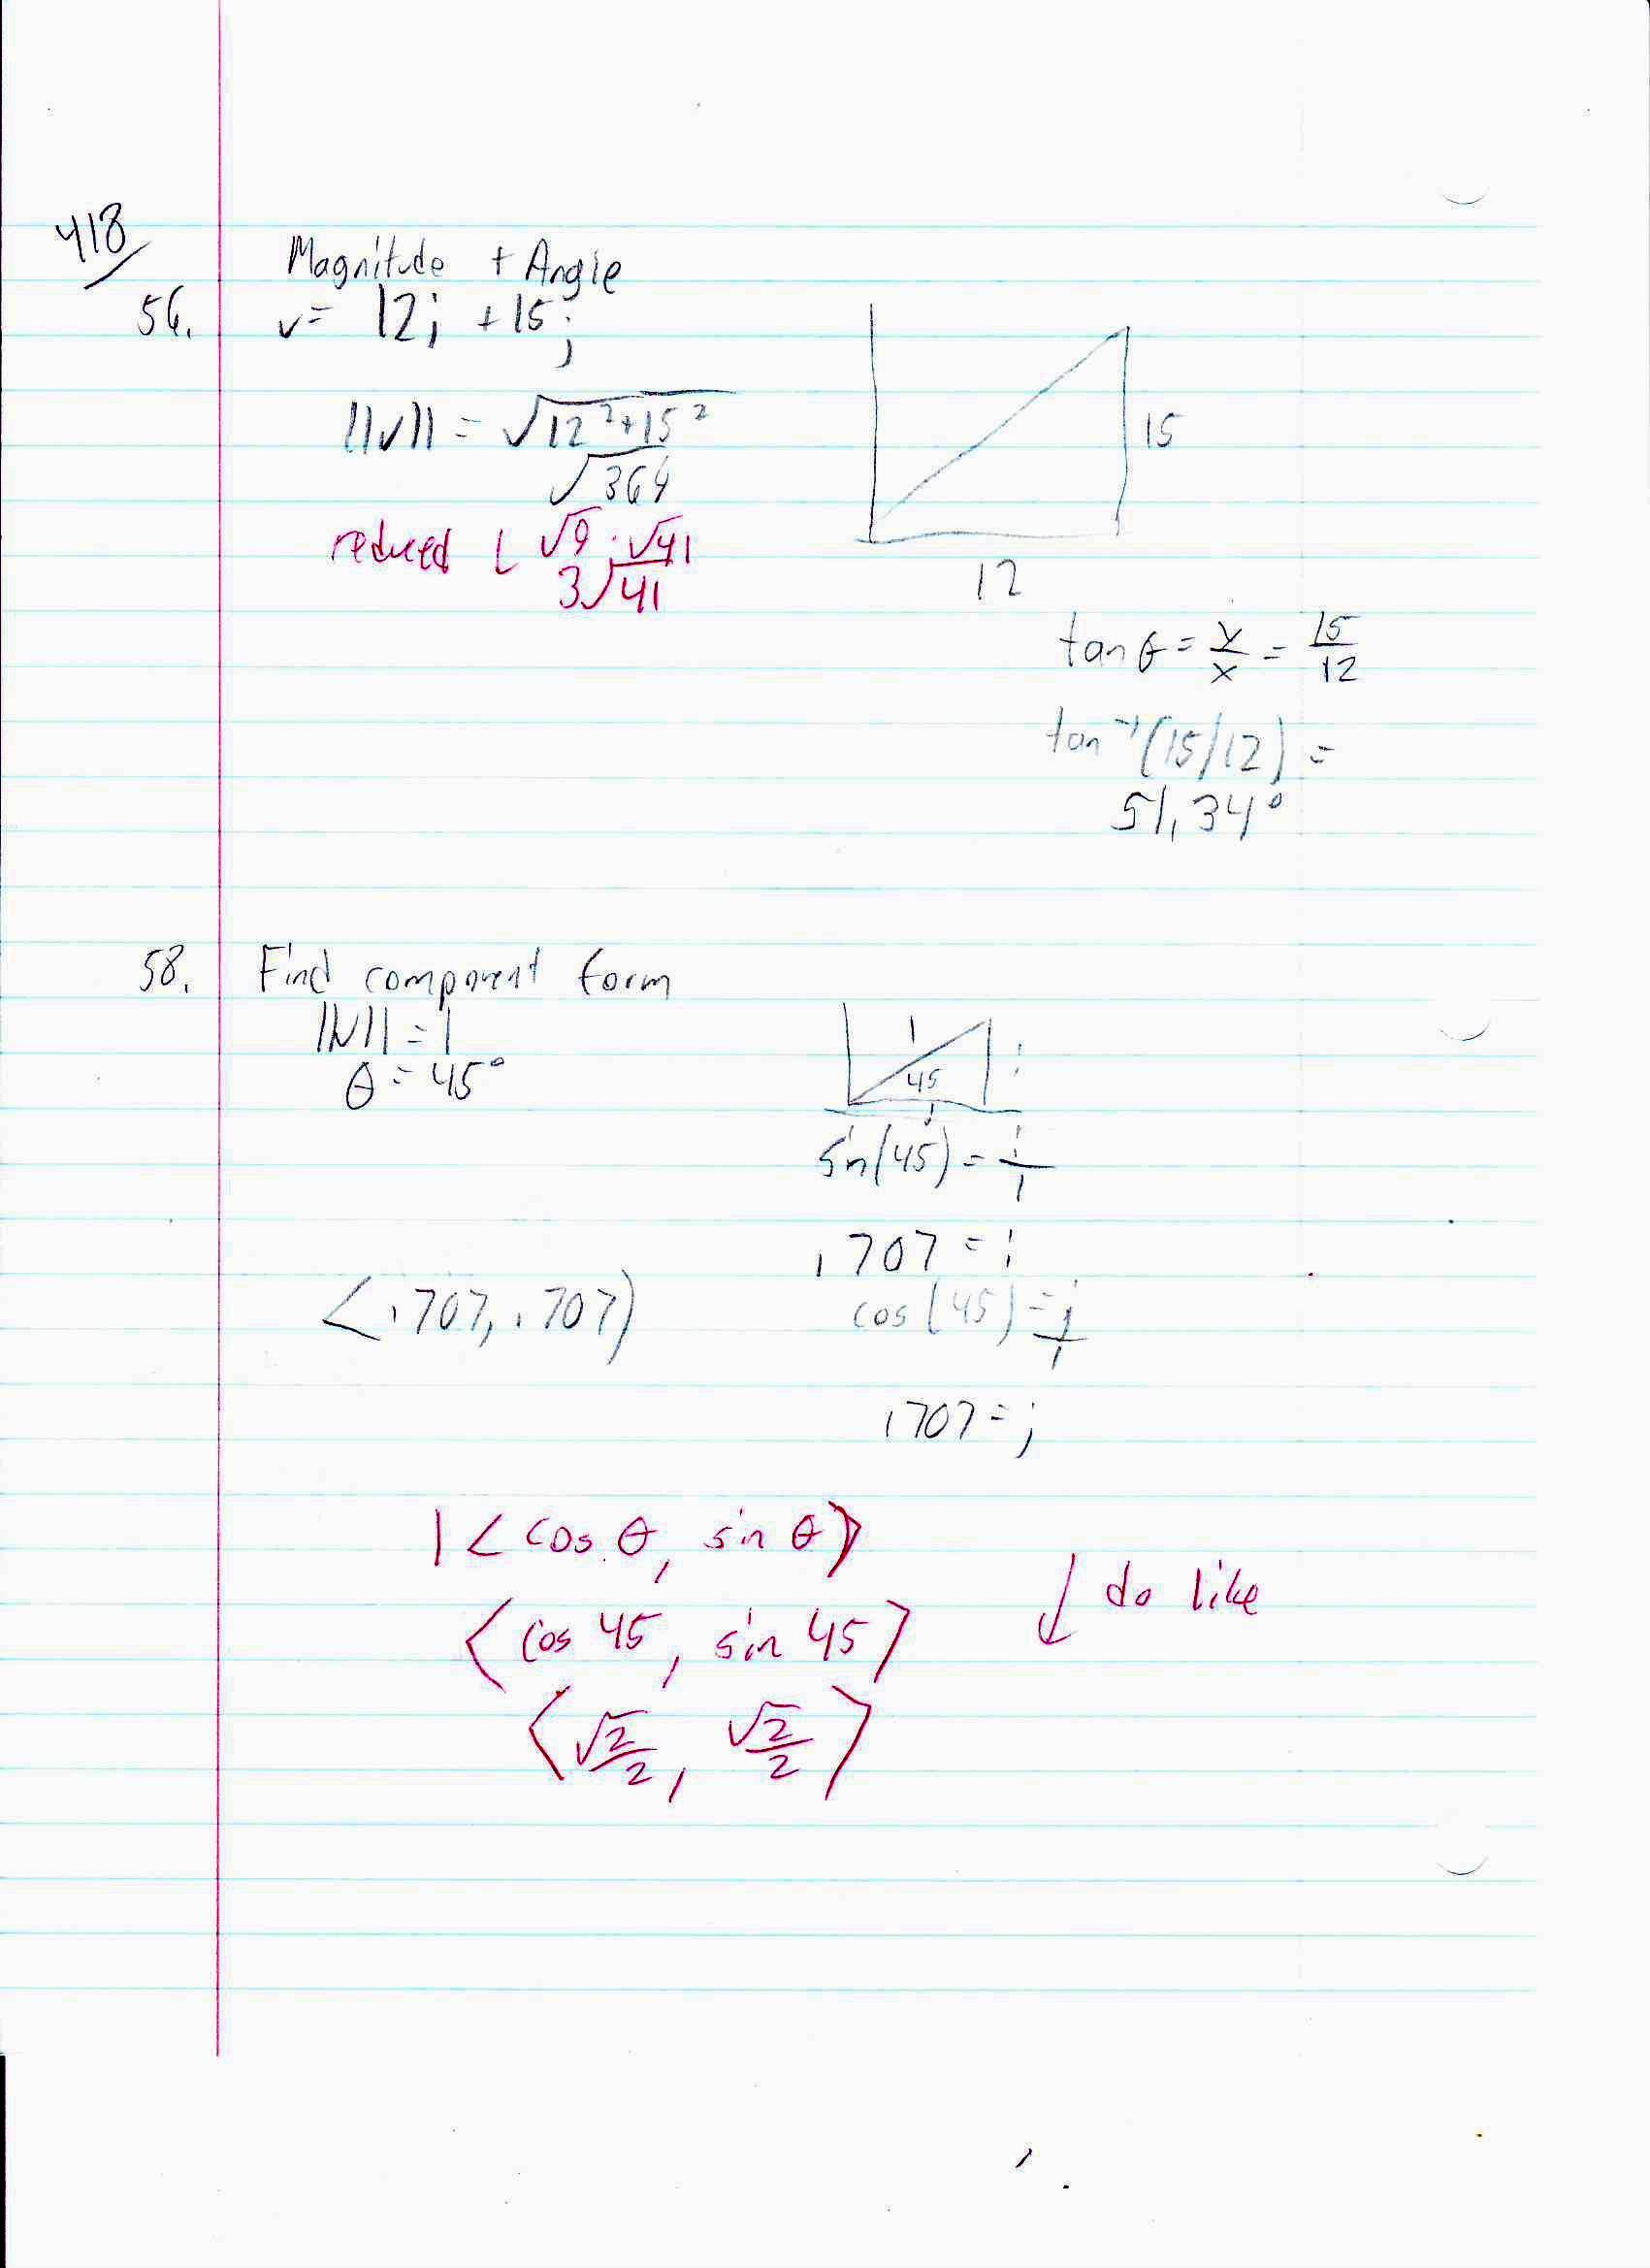 418
Magnitude + Angle
56. v= 12i + 15j
||v|| = √12²+15²
√369
reduced √9 · √41
3√41
15
12
tan θ = y/x = 15/12
tan⁻¹(15/12) =
51.34°
58. Find component form
||v|| = 1
θ = 45°
1
45
i
j
sin(45) = i/1
.707 = i
cos(45) = j/1
<.707, .707)
.707 = j
1<cos θ, sin θ>
↓ do like
<cos 45, sin 45>
<√2/2, √2/2>